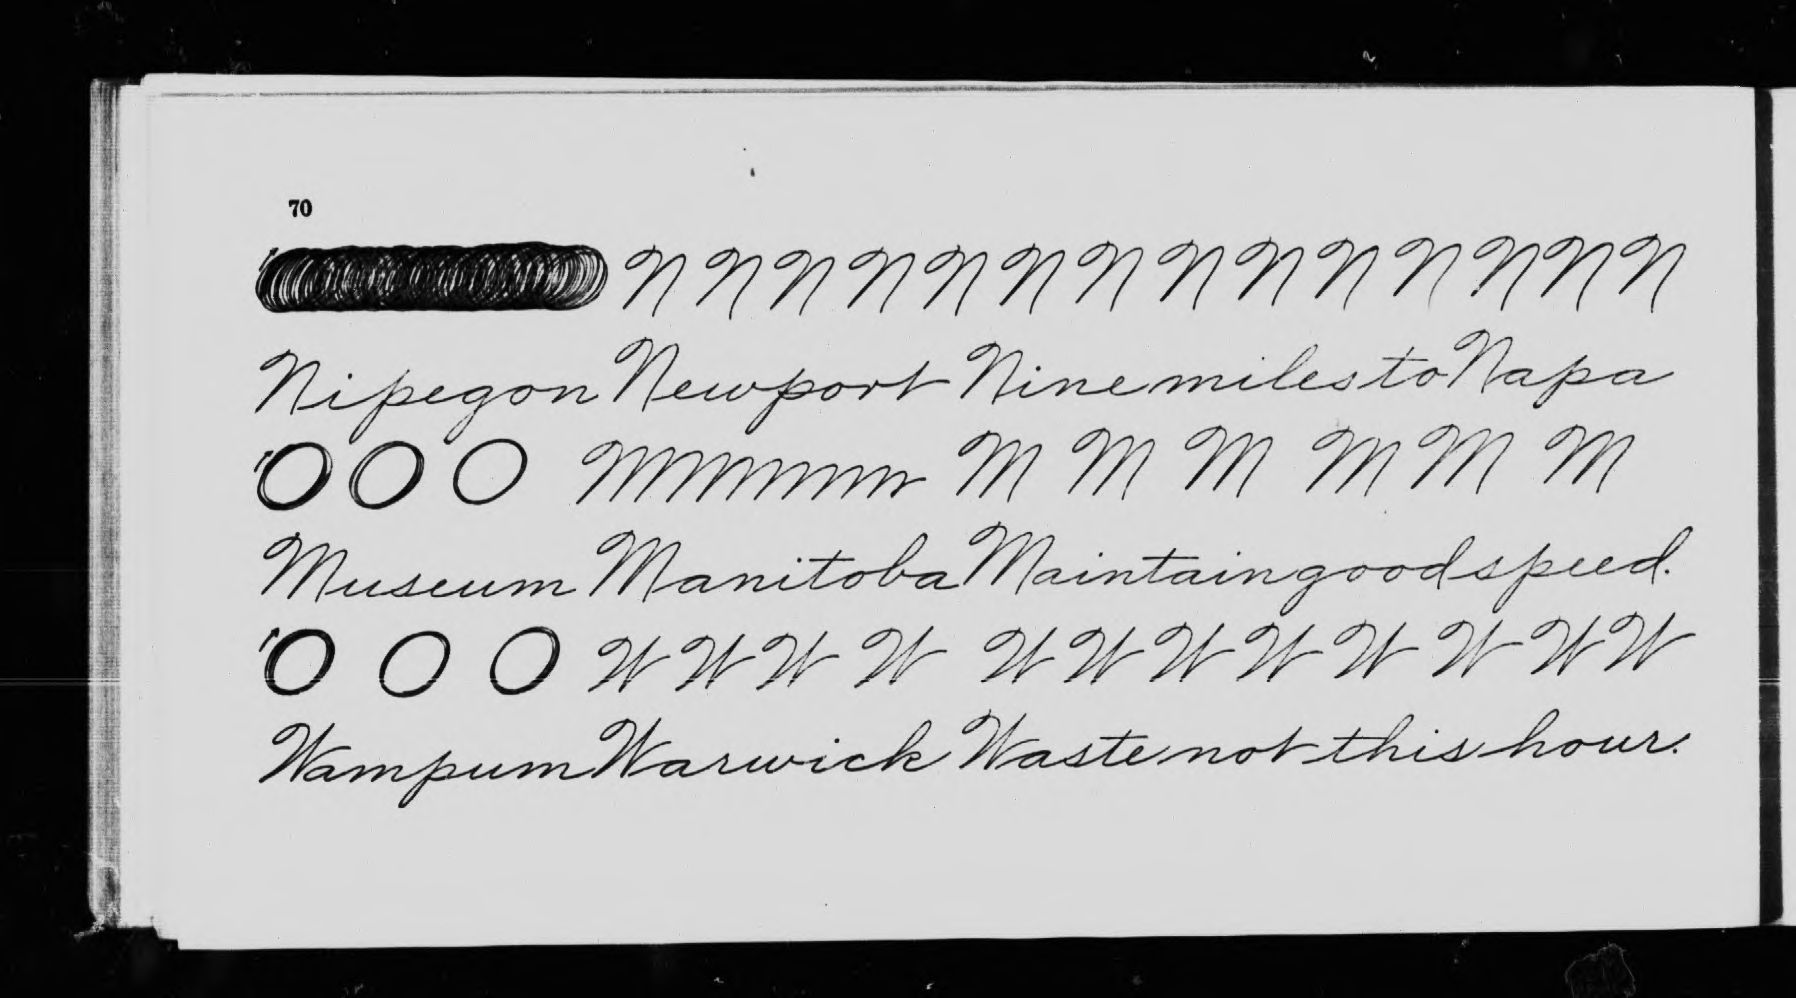 70
N N N N N N N N N N N N N N
Nipegon Newport Nine miles to Napa
O O O Mmmmmm M M M M M M
Museum Manitoba Maintain good speed.
O O O W W W W W W W W W W W W
Wampum Warwick Waste not this hour.